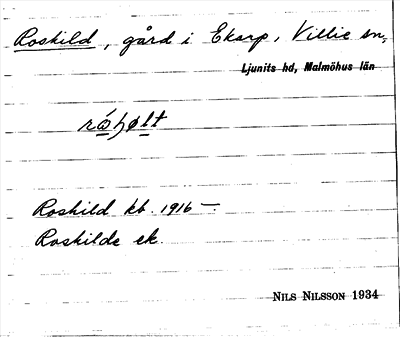 Roskild, gård i Ekarp, Villie sn,
Ljunits hd, Malmöhus län
Roskild kb. 1916 —
Roskilde ek.
NILS NILSSON 1934